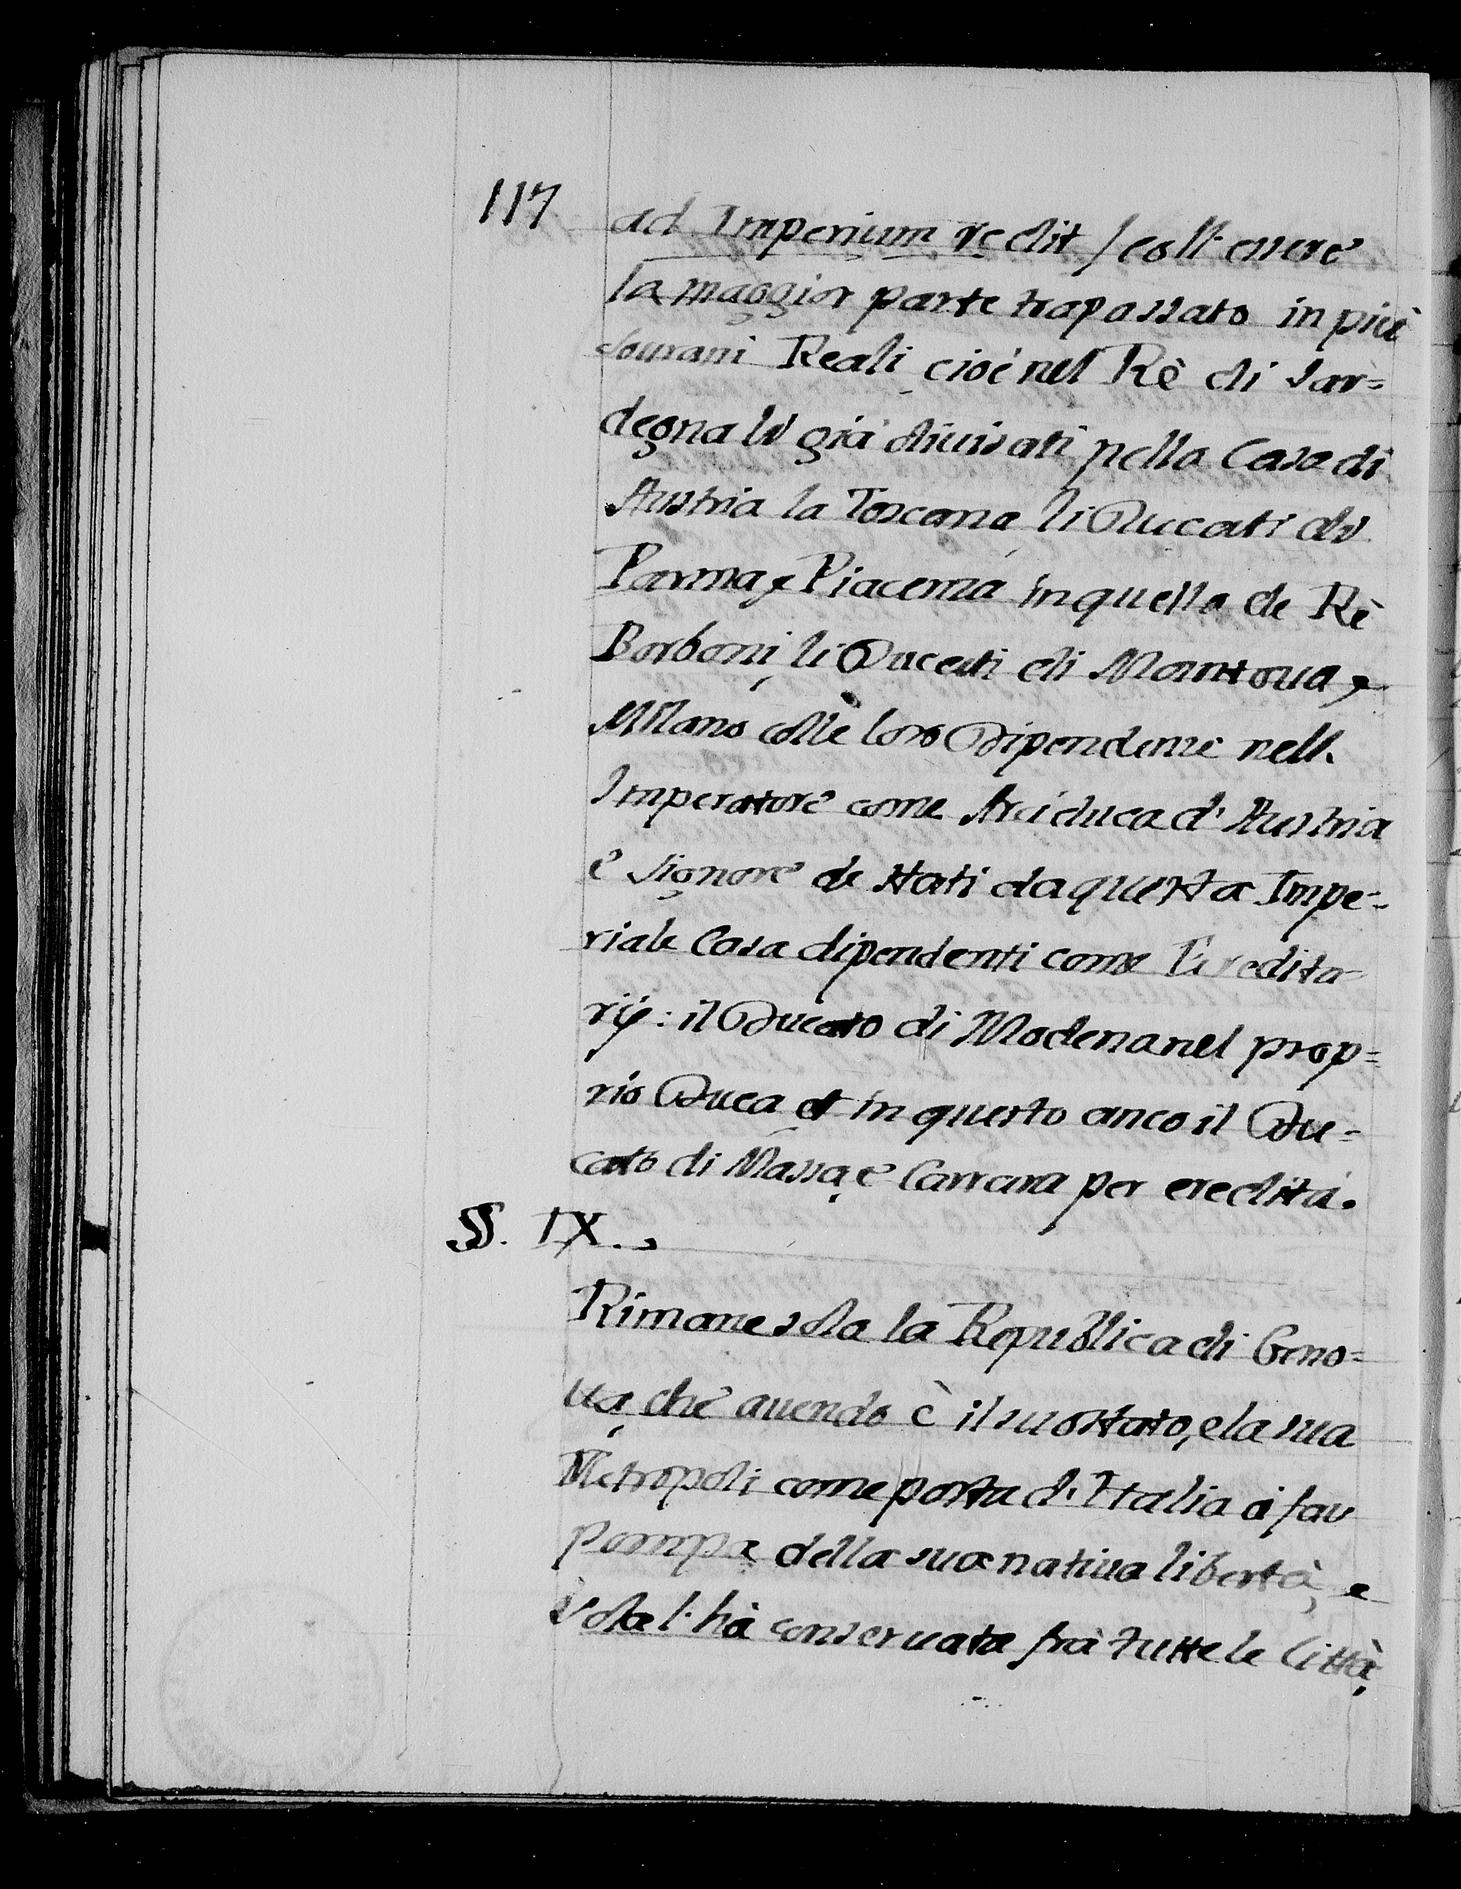 117
ad Imperium redit / coll' essere
la maggior parte trapassato in più
Sourani Reali cioé nel Rè di Sar=
degna li già diuisati nella Casa di
Austria la Toscana, li Ducati di
Parma, e Piacenza in quella de Rè
Borboni, li Ducati di Mantoua, e
Milano colle loro Dipendenze nell'
Imperatore come Arciduca d'Austria
e Signore de Stati da questa Impe=
riale Casa dipendenti come Eredita=
rij: il Ducato di Modena nel prop=
rio Duca et in questo anco il Du=
cato di Massa, e Carrara per eredità.
§. IX.
Rimane sola la Republica di Geno=
ua, che auendo è il suo stato, e la sua
Metropoli come porta d'Italia à far
pompa della sua natiua libertà, e
sola l'hà conseruata frà tutte le Città,